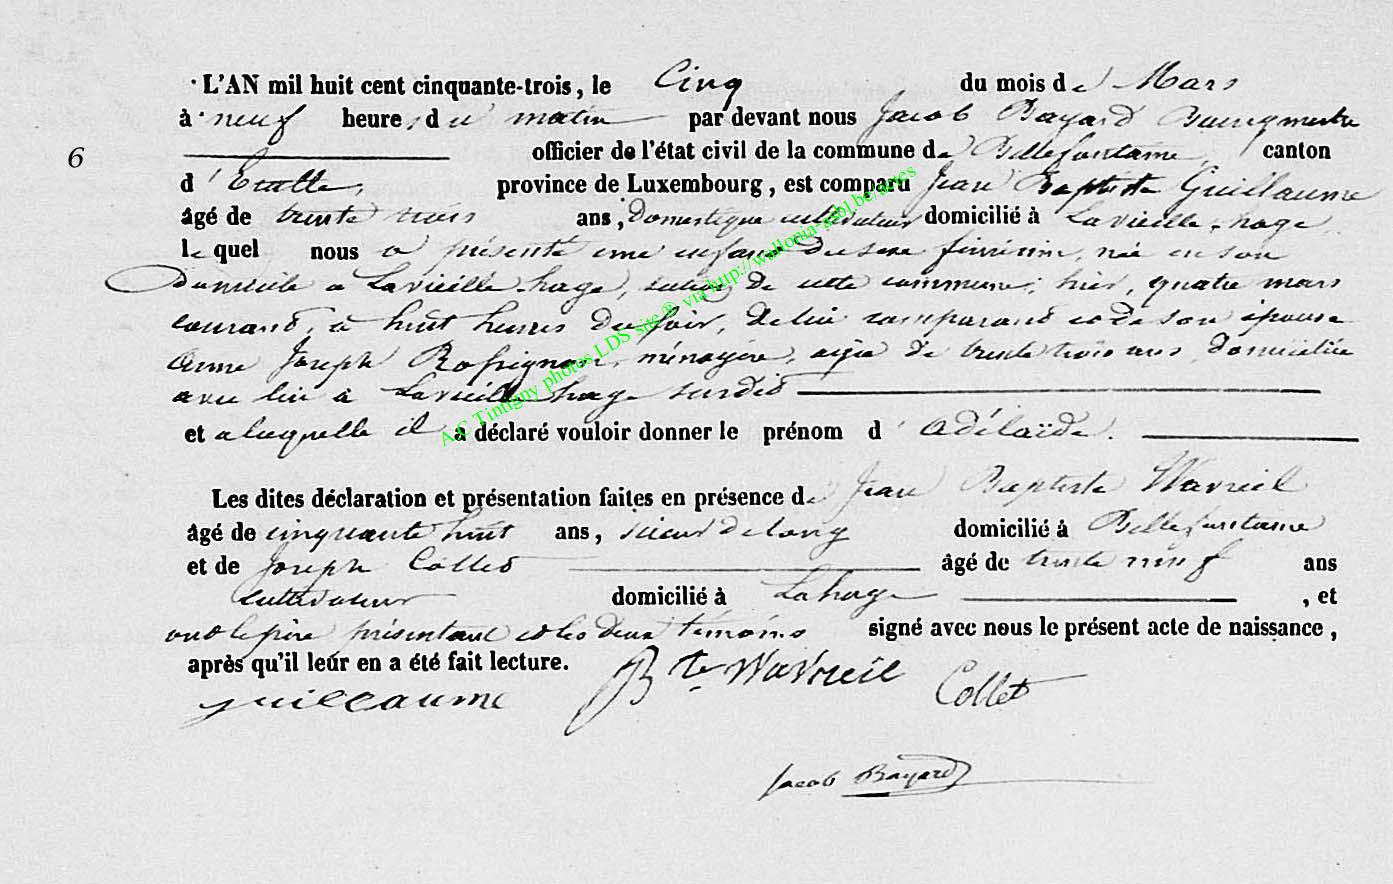 L'AN mil huit cent cinquante-trois, le Cinq du mois de Mars
à neuf heures du matin par devant nous Jacob Bayard Bourgmestre
6 officier de l'état civil de la commune de Bellefontaine, canton
d'Etalle, province de Luxembourg, est comparu Jean Baptiste Guillaume
âgé de trente trois ans, domestique cultivateur domicilié à Lavieille-hage,
lequel nous a présenté une enfant du sexe féminin, née en son
domicile à Lavieille-hage, section de cette commune, hier, quatre mars
courant, à huit heures du soir, de lui comparant et de son épouse
Anne Joseph Rossignon, ménagère, agée de trente trois ans domiciliée
avec lui à Lavieille-hage susdit
et a laquelle il a déclaré vouloir donner le prénom d'Adélaïde.
Les dites déclaration et présentation faites en présence de Jean Baptiste Wavreil
âgé de cinquante huit ans, scieur de long domicilié à Bellefontaine
et de Joseph Collet âgé de trente neuf ans
cultivateur domicilié à Lahage, et
ont le père présentant et les deux témoins signé avec nous le présent acte de naissance,
après qu'il leur en a été fait lecture.
Guillaume Bte Wavreil Collet
Jacob Bayard
A.C Tintigny photos LDS site® via http://wallonia-gbl.be/actes